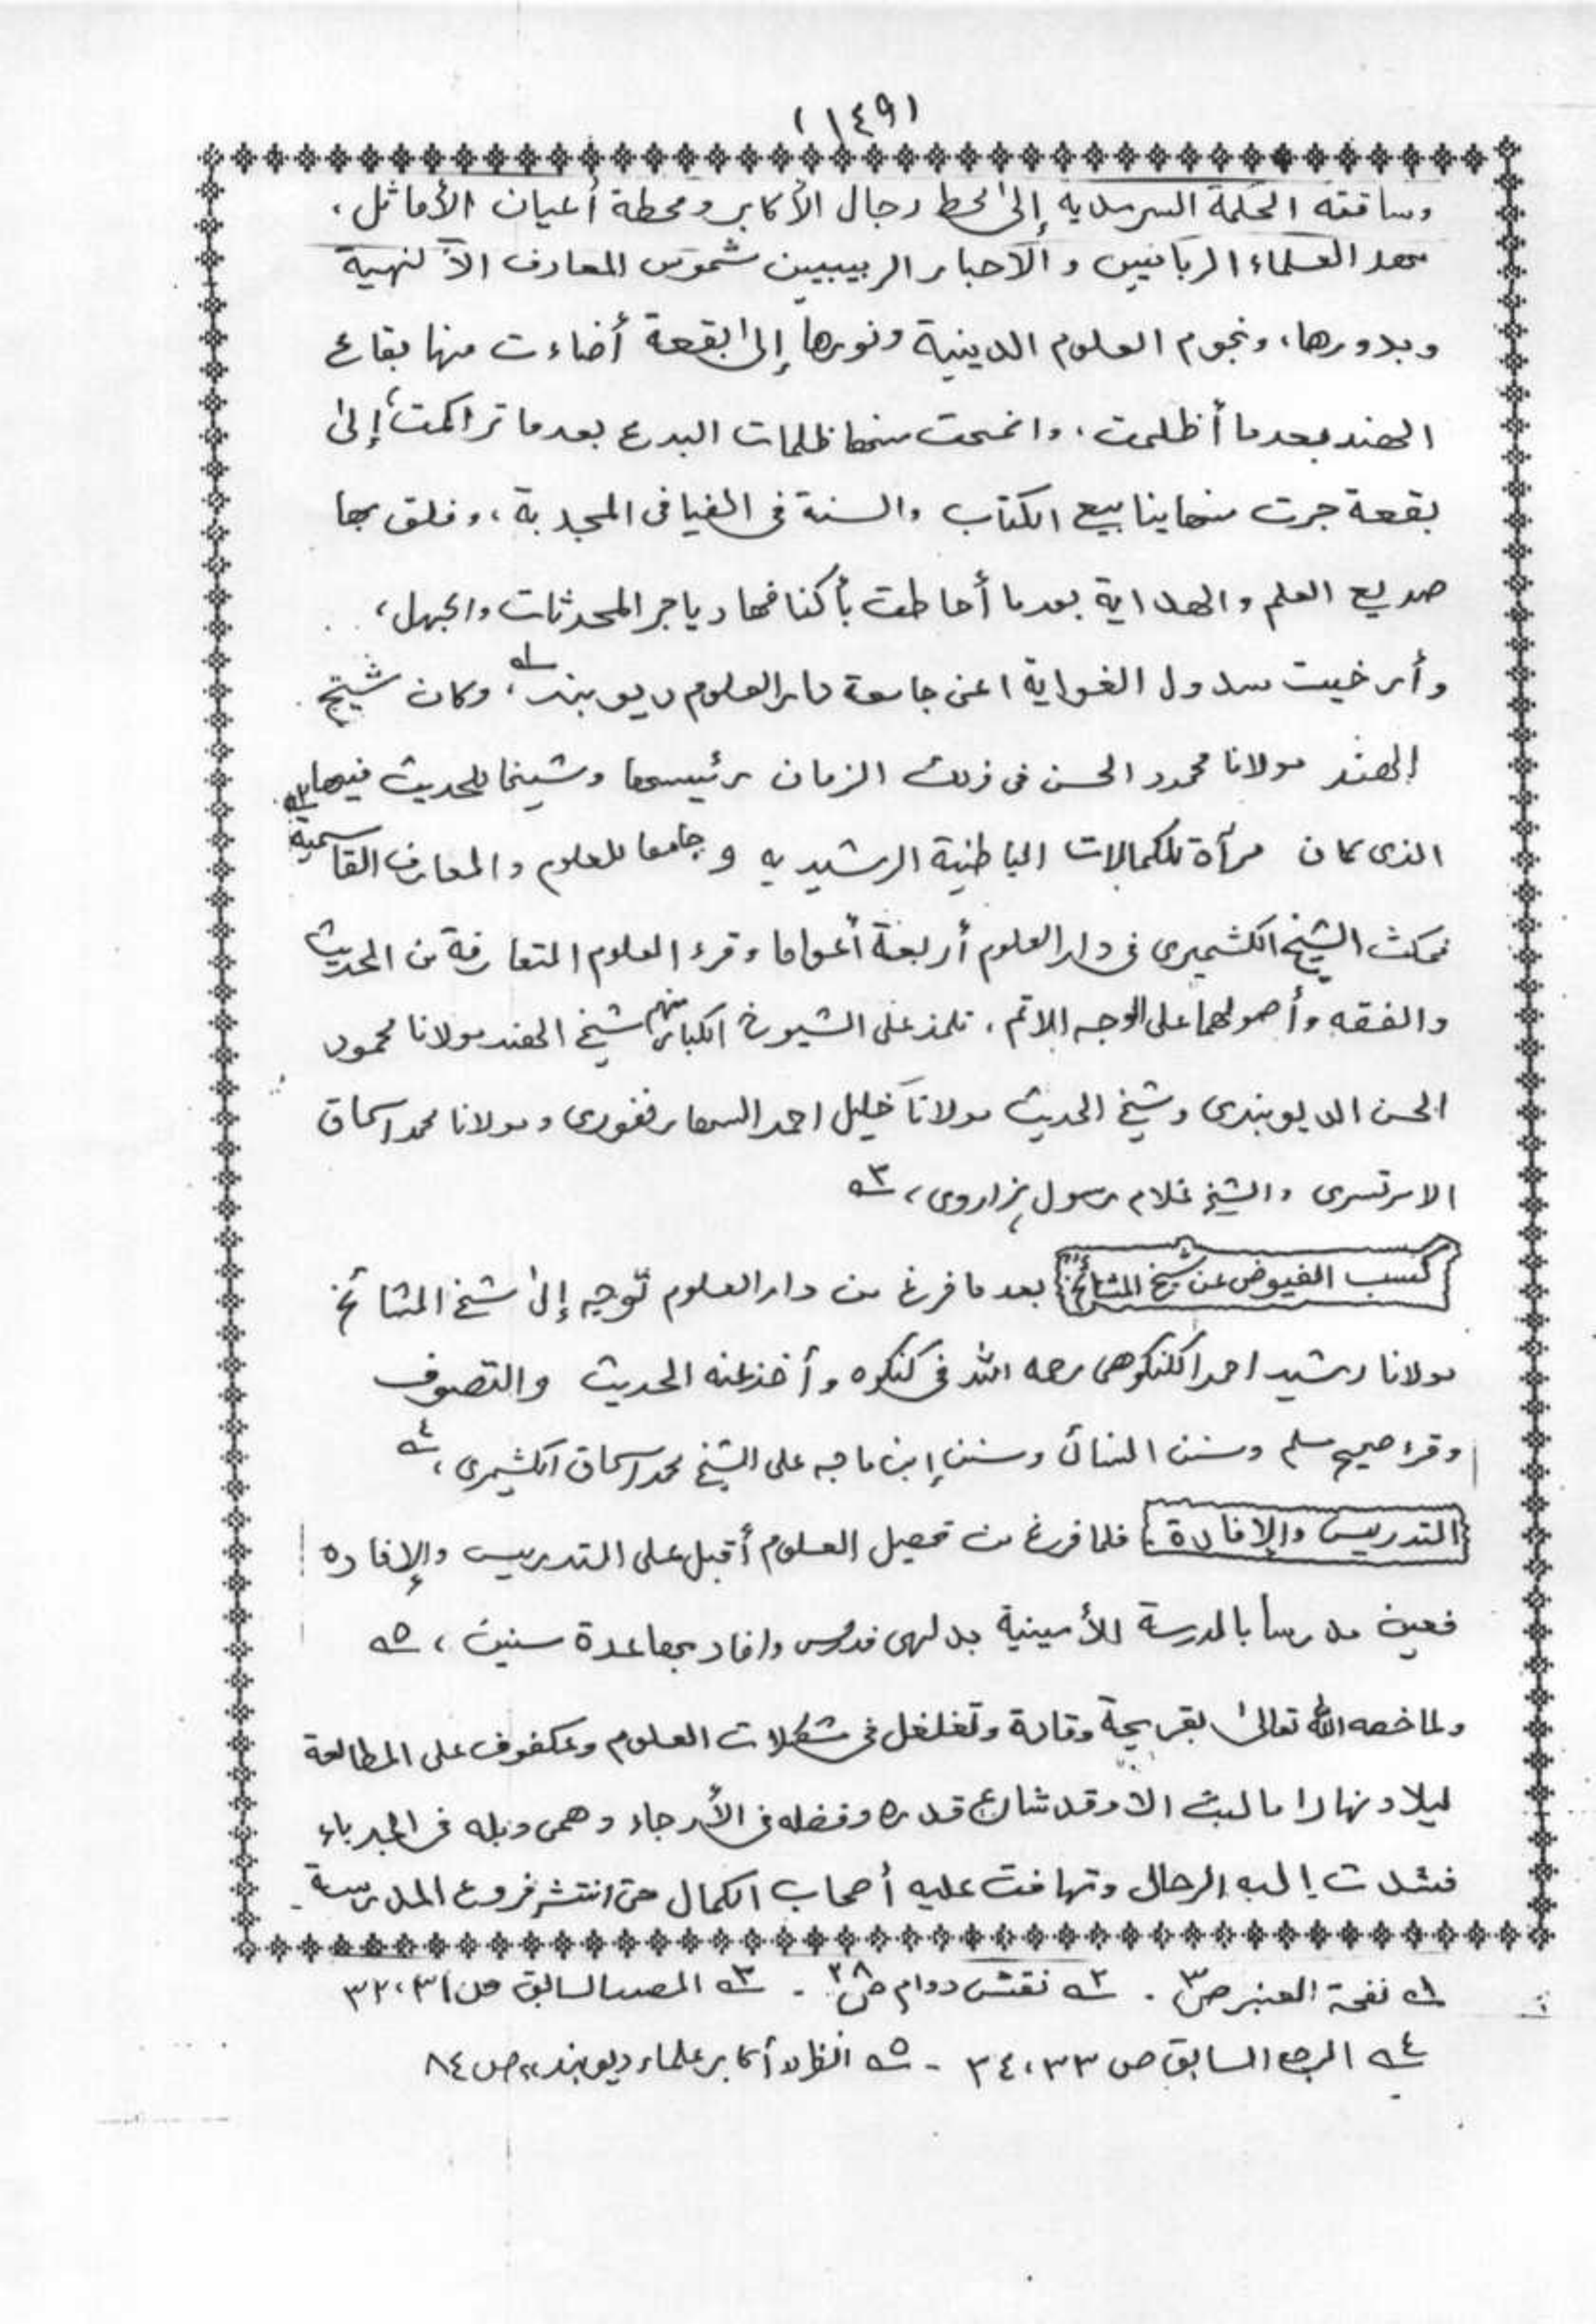 (١٤٩)
وساقته الحكمة السرمديه إلى محط رجال الأكابر ومحطة أعيان الأماثل،
معهد العلماء الربانيين والأحبار الربيبيين شموس المعارف الألهية
وبدورها، ونجوم العلوم الدينية ونورها إلى بقعة أضاءت منها بقاع
الهند بعدما أظلمت، وانمحت منها ظلمات البدع بعدما تراكمت، إلى
بقعة جرت منها ينابيع الكتاب والسنة في الفيافي المجدبة، وفلق بها
صديع العلم والهداية بعدما أحاطت بأكنافها دياجر المحدثات والجهل،
وأرخيت سدول الغواية اعنى جامعة دار العلوم ديوبند ١ــه، وكان شيخ
الهند مولانا محمود الحسن فى ذلك الزمان رئيسها وشيخا للحديث فيها ٢ــه
الذى كان مرأة للكمالات الباطنية الرشيديه و جامعا للعلوم والمعارف القاسمية
فمكث الشيخ الكشميرى فى دار العلوم أربعة أعواما وقرء العلوم المتعارفة من الحديث
والفقه وأصولهما على الوجه الاتم، تلمذ على الشيوخ الكبار منهم شيخ الهند مولانا محمود
الحسن الديوبندى وشيخ الحديث مولانا خليل احمد السهارنفورى ومولانا محمد اسحاق
الامرتسرى والشيخ غلام رسول ہزاروى، ٣ــه
كسب الفيوض عن شيخ المشائخ: بعد ما فرغ من دار العلوم توجه إلى شيخ المشائخ
مولانا رشيد احمد الكنكوهى رحمه الله فى كنكوه وأخذ عنه الحديث والتصوف
وقرء صحيح مسلم وسنن النسائى وسنن إبن ماجه على الشيخ محمد اسحاق الكشميرى، ٤ــه
التدريس والإفادة: فلما فرغ من تحصيل العلوم أقبل على التدريس والإفاده
فعين مدرسا بالمدرسة الأمينية بدلهى فدرس وافاد بها عدة سنين، ٥ــه
ولما خصه الله تعالى بقريحة وقادة وتغلغل فى مشكلات العلوم وعكفوف على المطالعة
ليلا ونهارا ما لبث الا وقد شاع قدره وفضله فى الأرجاء وهمى وبله فى الجرباء
فشدت إليه الرحال وتهافت عليه أصحاب الكمال حتى انتشر فروع المدرسة
١ــه نفحة العنبر ص٣. ٢ــه نقش دوام ص٢٨. ٣ــه المصدر السابق ص ٣١، ٣٢
٤ــه المرجع السابق ص ٣٣، ٣٤ - ٥ــه انظر "أكابر علماء ديوبند" ص ٨٤